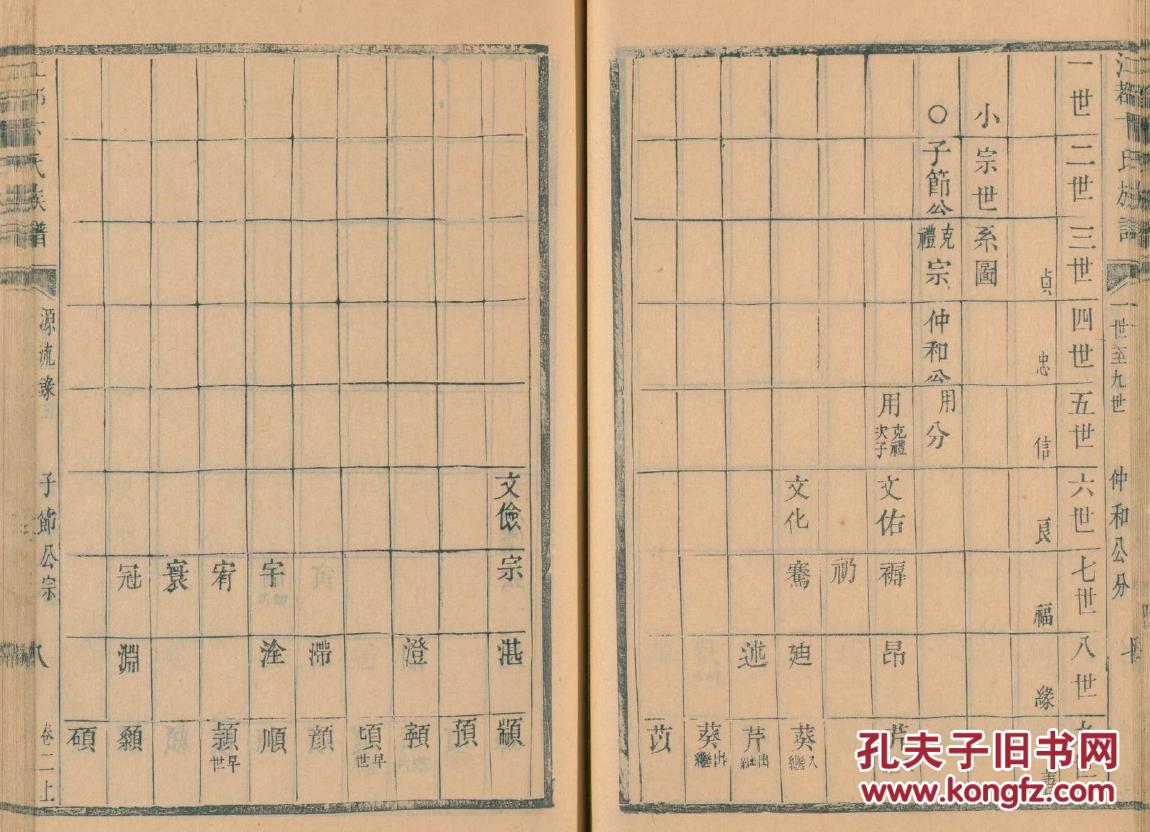 一世 二世 三世 四世 五世 六世 七世 八世
貞 忠 信 良 福 緣
小宗世系圖
○子節公克禮宗仲和公用分
用克禮次子 文佑 禱 昂
礽
文化 騫 迪 葵入繼
述 芹出繼
葵出繼
苡
一世至九世 仲和公分
文儉 宗 湛 顓
預
澄 額
頊早世
滯 顏
宇 淦 順
宥 顥早世
寰
冠 淵 纇
碩
氏族譜 源流錄 子節公宗 八 卷二上
孔夫子旧书网
www.kongfz.com